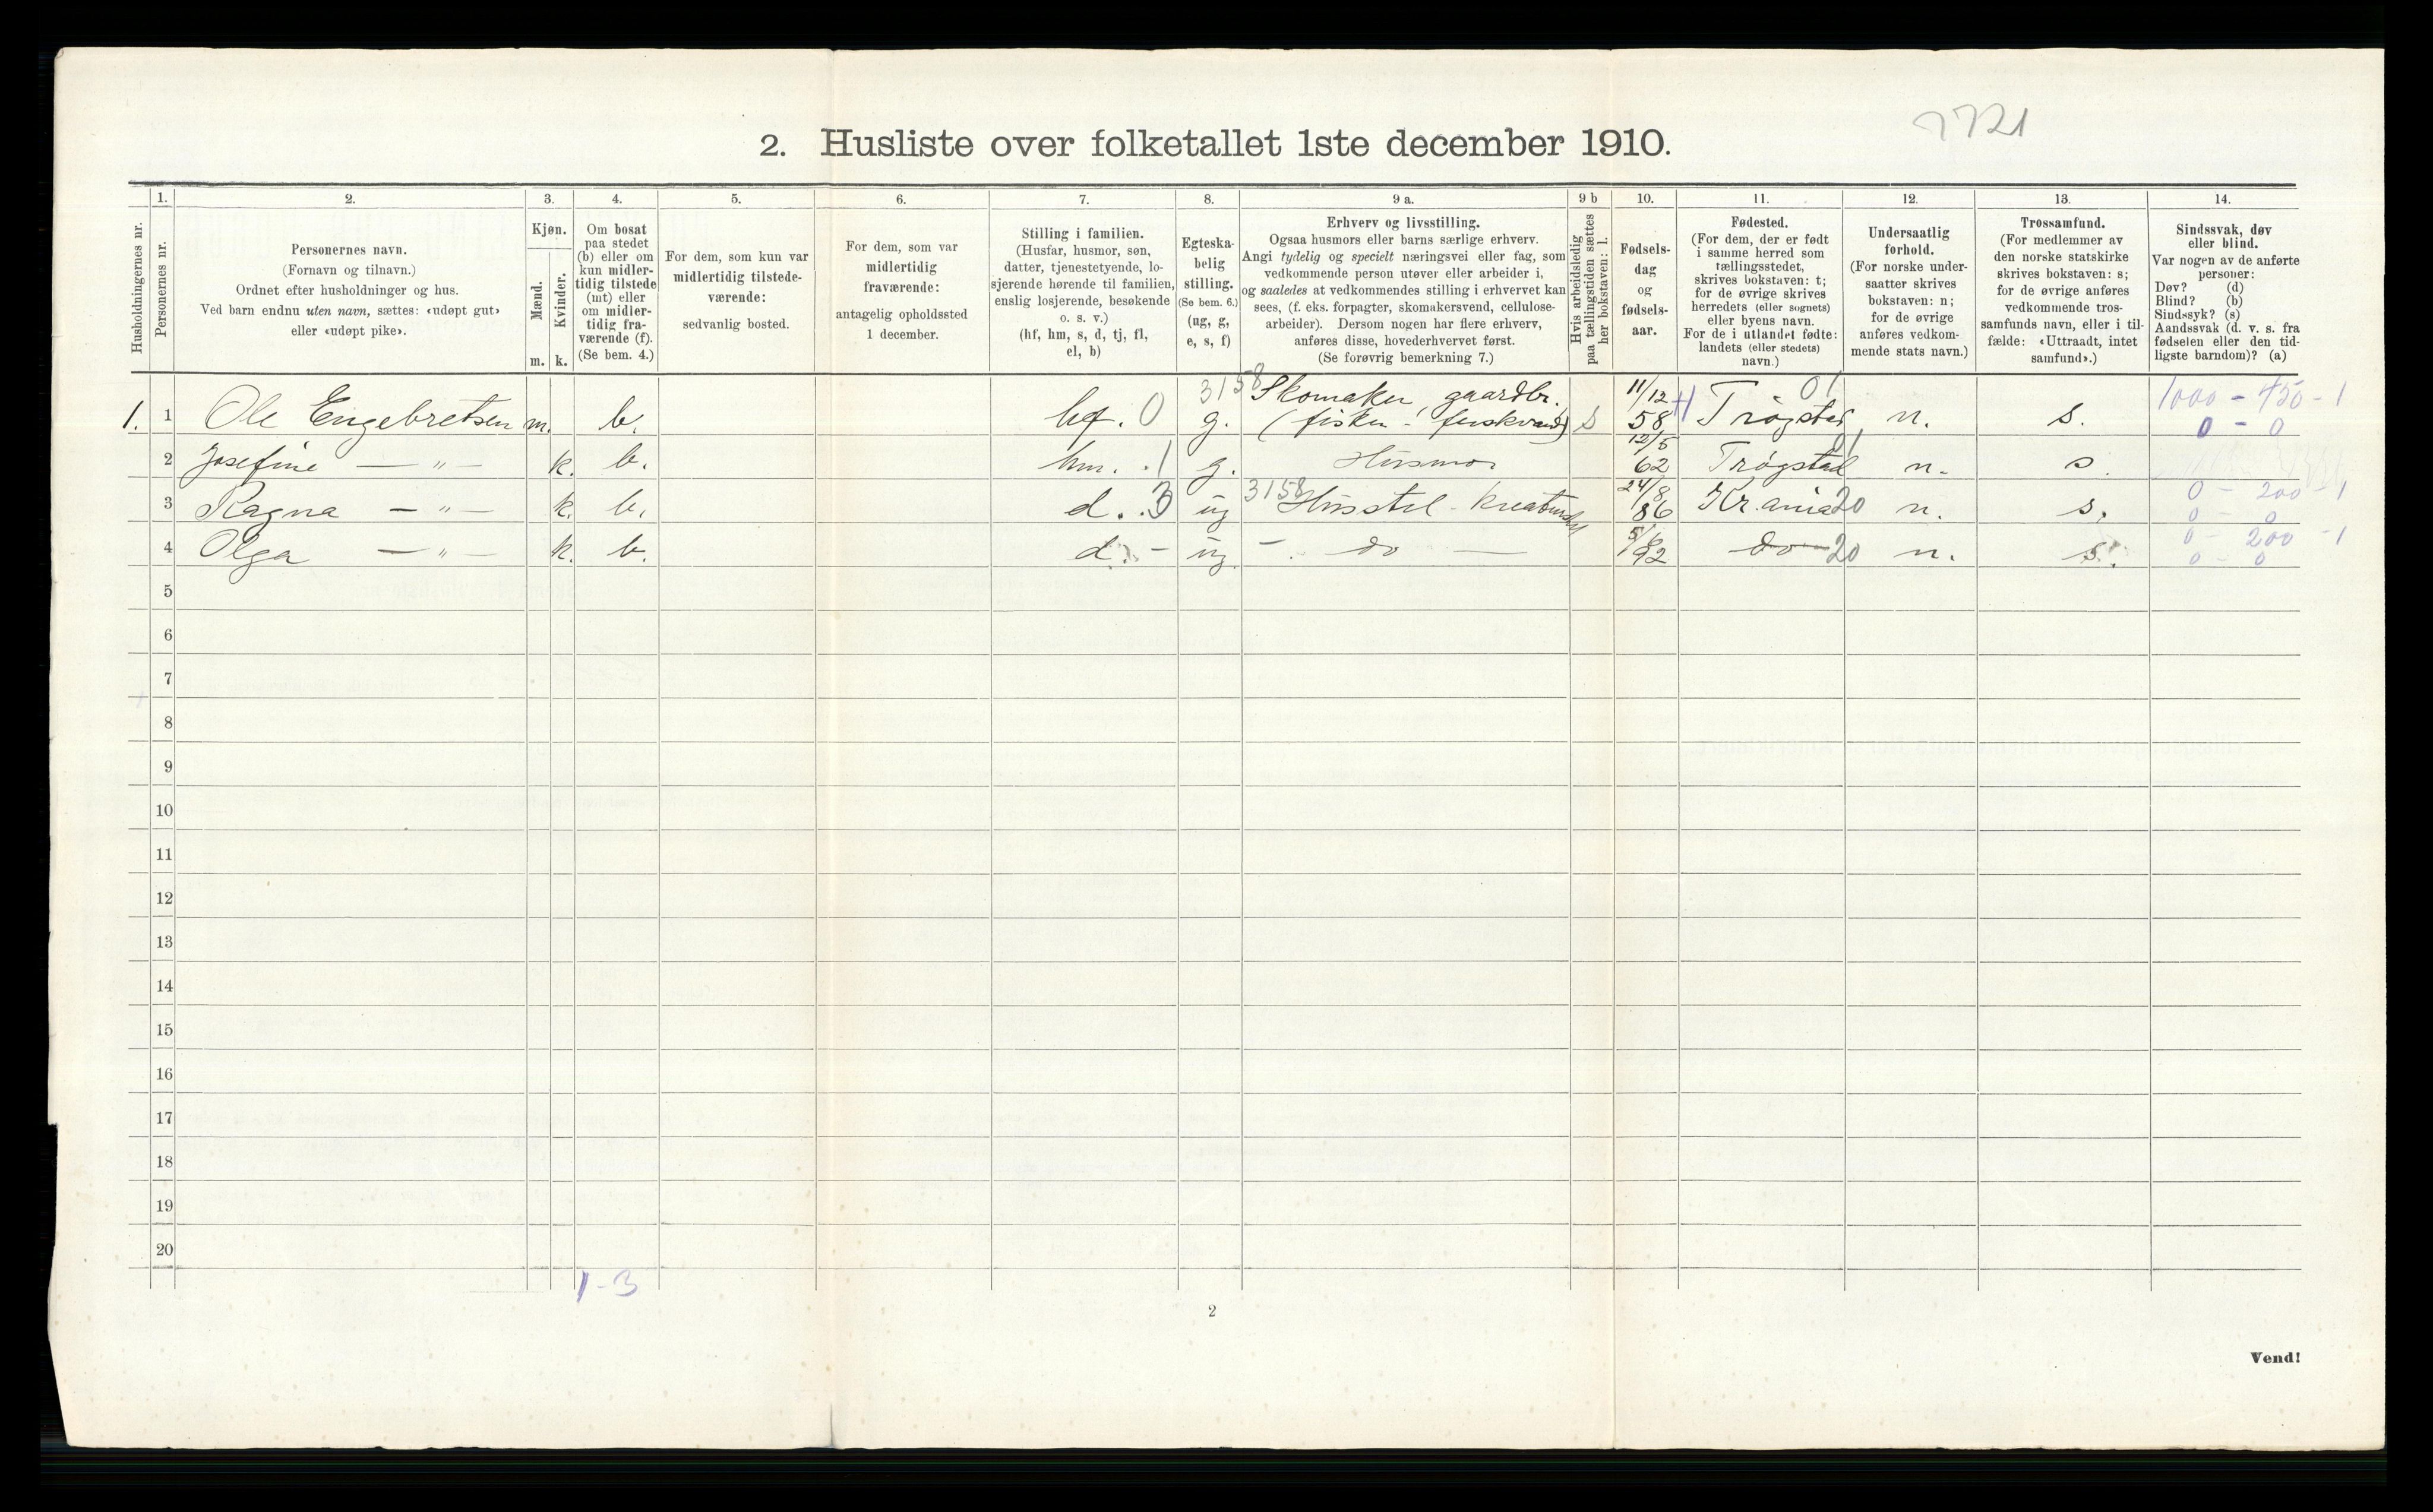 7721
2. Husliste over folketallet 1ste december 1910.
Husholdningernes nr.
1.
Personernes nr.
2.
Personernes navn.
(Fornavn og tilnavn.)
Ordnet efter husholdninger og hus.
Ved barn endnu uten navn, sættes: «udøpt gut»
eller «udøpt pike».
3.
Kjøn.
Mænd.
Kvinder.
m. k.
4.
Om bosat
paa stedet
(b) eller om
kun midler-
tidig tilstede
(mt) eller
om midler-
tidig fra-
værende (f).
(Se bem. 4.)
5.
For dem, som kun var
midlertidig tilstede-
værende:
sedvanlig bosted.
6.
For dem, som var
midlertidig
fraværende:
antagelig opholdssted
1 december.
7.
Stilling i familien.
(Husfar, husmor, søn,
datter, tjenestetyende, lo-
sjerende hørende til familien,
enslig losjerende, besøkende
o. s. v.)
(hf, hm, s, d, tj, fl,
el, b)
8.
Egteska-
belig
stilling.
(Se bem. 6.)
(ug, g,
e, s, f)
9 a.
Erhverv og livsstilling.
Ogsaa husmors eller barns særlige erhverv.
Angi tydelig og specielt næringsvei eller fag, som
vedkommende person utøver eller arbeider i,
og saaledes at vedkommendes stilling i erhvervet kan
sees, (f. eks. forpagter, skomakersvend, cellulose-
arbeider). Dersom nogen har flere erhverv,
anføres disse, hovederhvervet først.
(Se forøvrig bemerkning 7.)
9 b
Hvis arbeidsledig
paa tællingstiden sættes
her bokstaven: l.
10.
Fødsels-
dag
og
fødsels-
aar.
11.
Fødested.
(For dem, der er født
i samme herred som
tællingsstedet,
skrives bokstaven: t;
for de øvrige skrives
herredets (eller sognets)
eller byens navn.
For de i utlandet fødte:
landets (eller stedets)
navn.)
12.
Undersaatlig
forhold.
(For norske under-
saatter skrives
bokstaven: n;
for de øvrige
anføres vedkom-
mende stats navn.)
13.
Trossamfund.
(For medlemmer av
den norske statskirke
skrives bokstaven: s;
for de øvrige anføres
vedkommende tros-
samfunds navn, eller i til-
fælde: «Uttraadt, intet
samfund».)
14.
Sindssvak, døv
eller blind.
Var nogen av de anførte
personer:
Døv? (d)
Blind? (b)
Sindssyk? (s)
Aandssvak (d. v. s. fra
fødselen eller den tid-
ligste barndom)? (a)
3158 Skomaker, gaardbr. 11/12 01 1000 - 450 - 1
1. 1 Ole Engebretsen m. b. hf. 0 g. (fisker - ferskvand) s 58 Trøgstad n. s. 0 - 0
12/5 01
2 Josefine — " — k. b. hm. 1 g. Husmor 62 Trøgstad n. s.
3158 24/8 0 - 200 - 1
3 Ragna — " — k. b. d. 3 ug Husstel - kreaturstel 86 Kr.ania 20 n. s. 0 - 0
5/6 0 - 200 - 1
4 Olga — " — k. b. d. - ug - do — 92 do 20 n. s. 0 - 0
5
6
7
8
9
10
11
12
13
14
15
16
17
18
19
20
1 - 3
2
Vend!